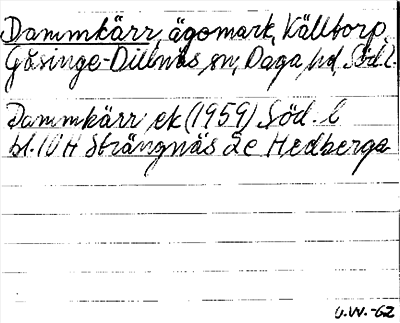 Dammkärr, ägomark, Källtorp,
Gåsinge-Dillnäs sn, Daga hd, Söd. l.
Dammkärr ek (1959) Söd. l
bl. 10 H Strängnäs 2e Hedberga
U.W.-62